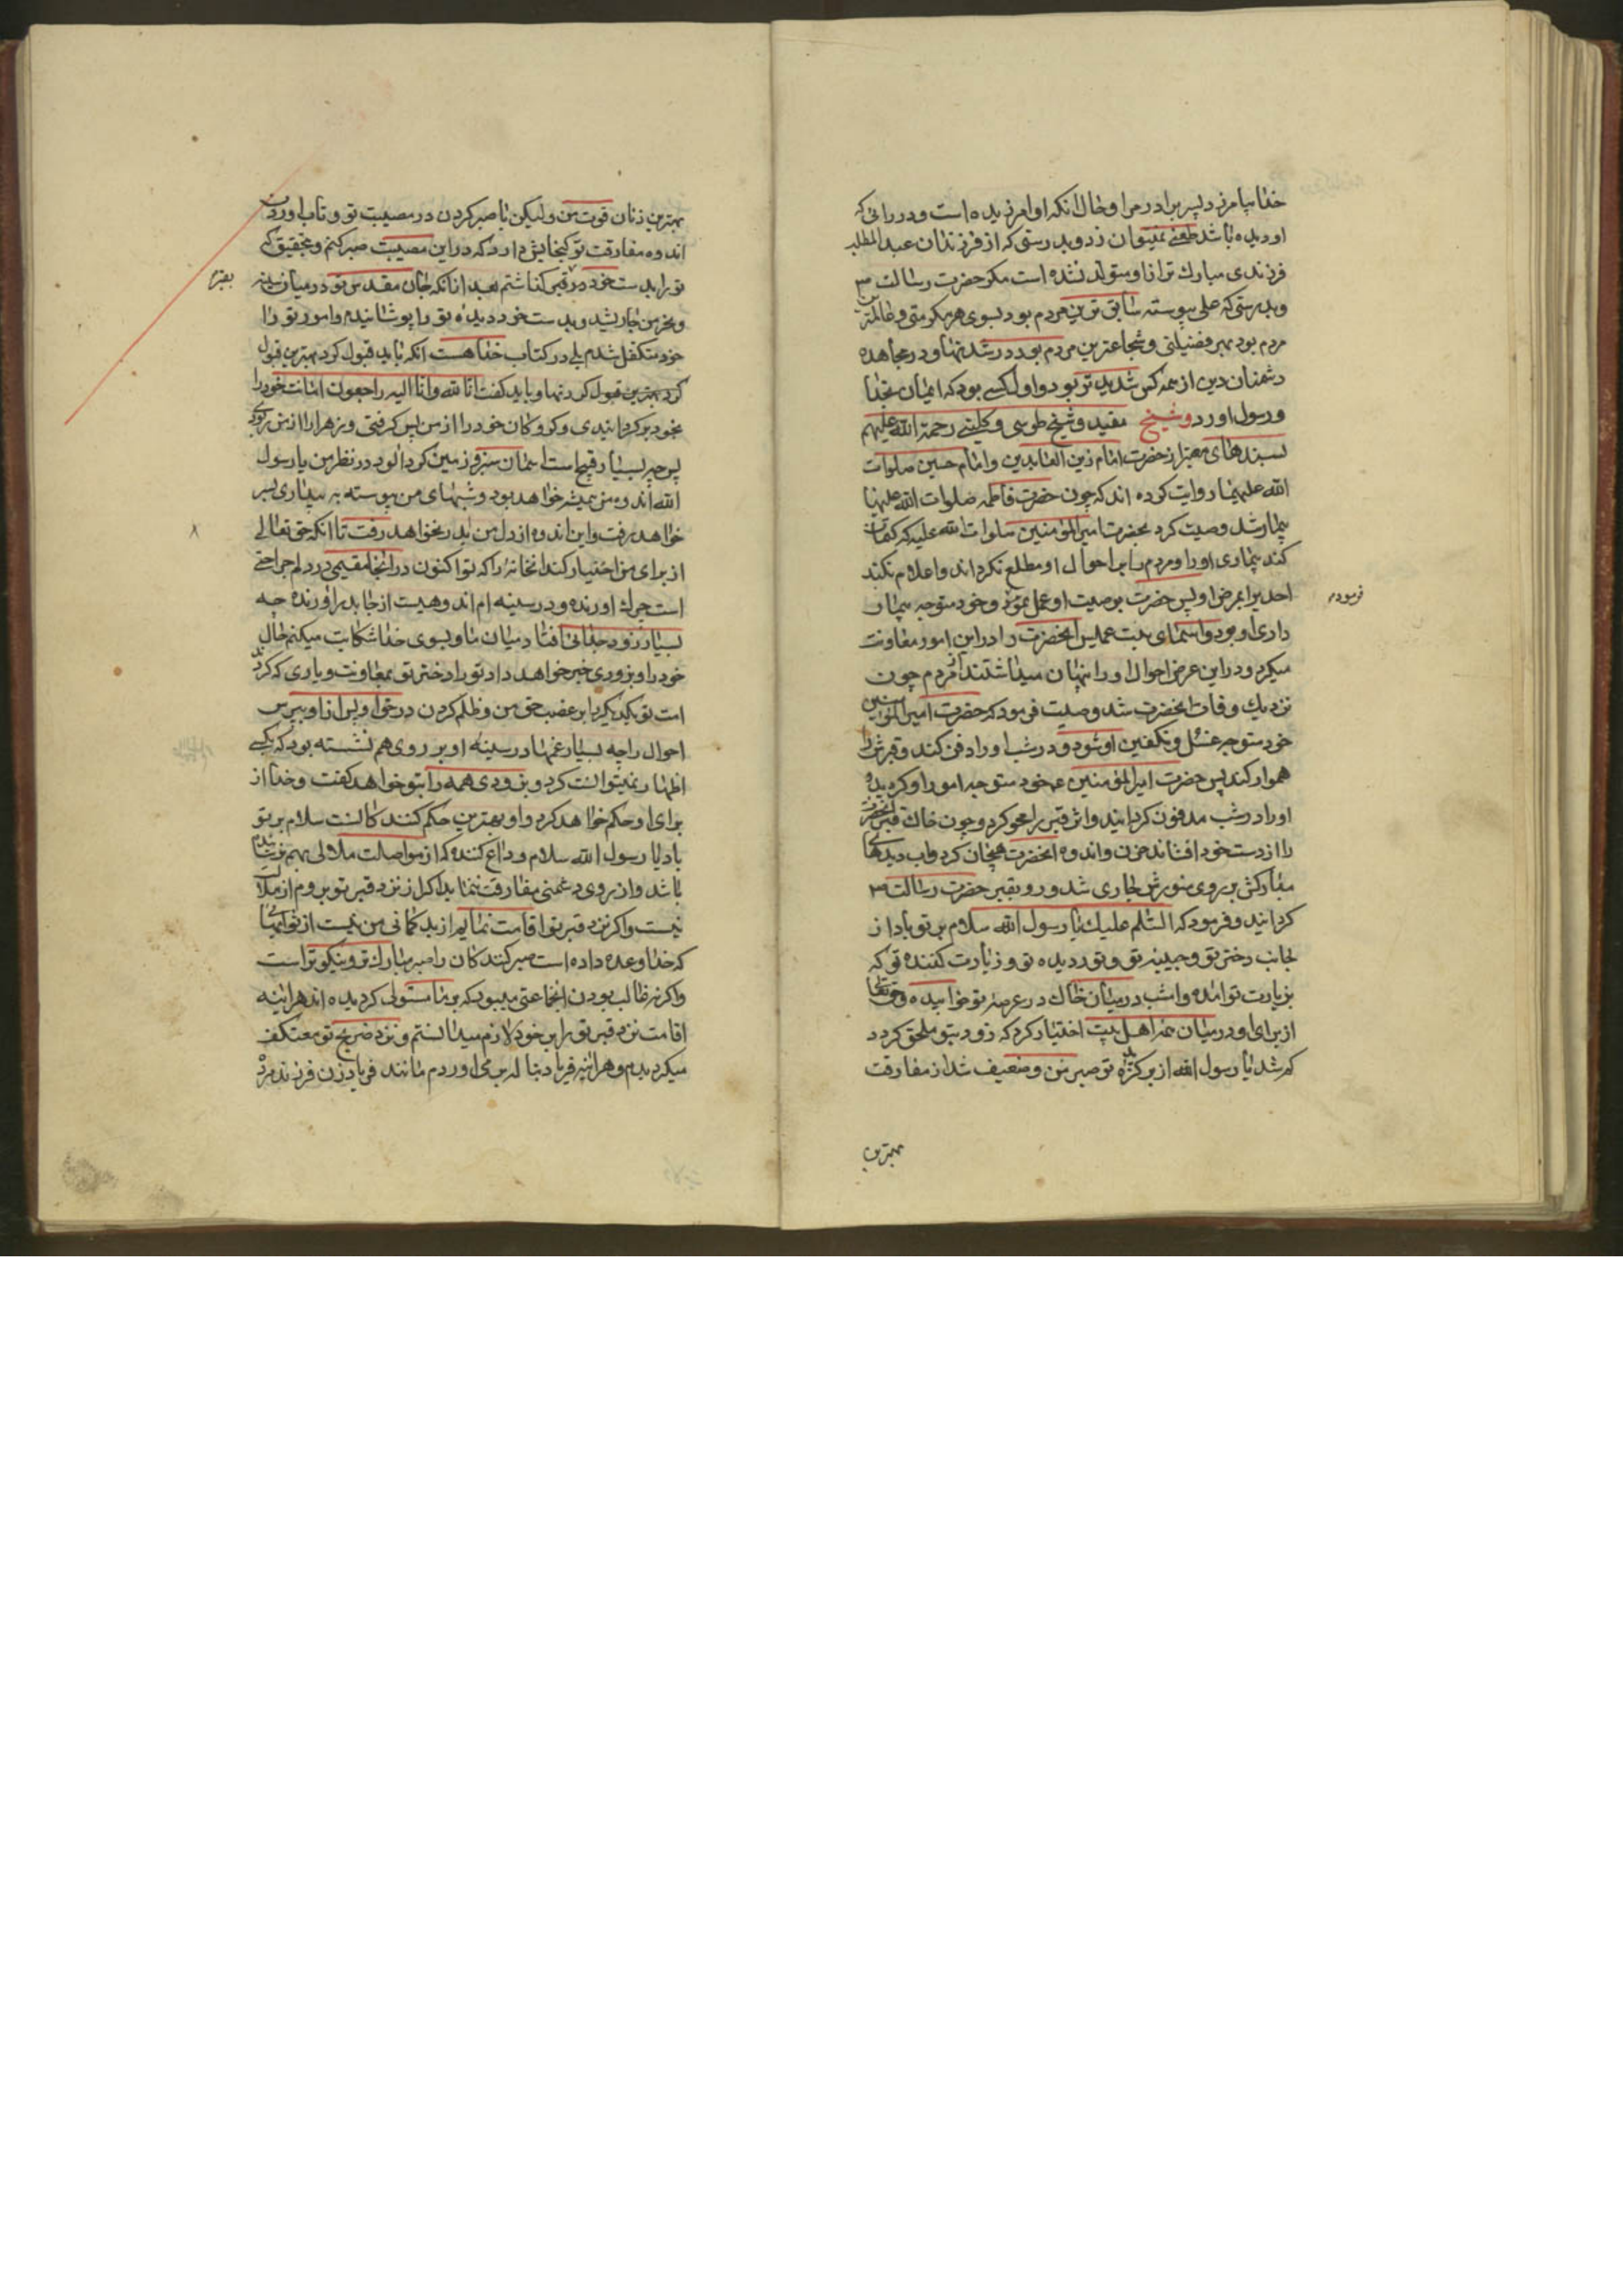 خدا بیامرزد پسر برادر مرا و حال آنکه او امرزیده است و در رائی که
او دیده باشد طعنی نمیتوان زد و بدرستی که از فرزندان عبد المطلب
فرزندی مبارک تر از او متولد نشده است مکر حضرت رسالت ص
و بدرستی که علی پیوسته سابق ترین مردم بود بسوی هر مکرمتی و
مردم بود بهر فضیلتی و شجاعترین مردم بود در شدتها و در مجاهده
دشمنان دین از همه کس شدید تر بود و اول کسی بود که ایمان بخدا
و رسول اورد و شیخ مفید و شیخ طوسی و کلینی رحمة الله علیهم
بسندهای معتبر از حضرت امام زین العابدین و امام حسین صلوات
الله علیهما روایت کرده اند که چون حضرت فاطمه صلوات الله علیها
بیمار شد وصیت کرد بحضرت امیر المؤمنین صلوات الله علیه که کتمان
کند بیماری او را و مردم را بر احوال او مطلع نکرداند و اعلام نکند
احدیرا بمرض او پس حضرت بوصیت او عمل نمود و خود متوجه بیمار
داری او بود و اسمای بنت عمیس انحضرت را در این امور معاونت
میکرد و در این عرض احوال او را پنهان میداشتند از مردم چون
نزدیک وفات انحضرت شد وصیت فرمود که حضرت امیر المؤمنین
خود متوجه غسل و تکفین او شود و در شب او را دفن کند و قبرش را
هموار کند پس حضرت امیر المؤمنین ع خود متوجه امور او کردید و
او را در شب مدفون کردانید و اثر قبر را محو کرد و چون خاک قبر انحضرت
را از دست خود افشاند حزن و اندوه انحضرت هیجان کرد و آب دیدهای
مبارکش بر روی منورش جاری شد و رو بقبر حضرت رسالت ص
کردانید و فرمود که السلم علیک یا رسول الله سلام بر تو باد از
جانب دختر تو و حبیبه تو و نور دیده تو و زیارت کننده تو که
بزیارت تو امده و امشب در میان خاک در عرصه تو خوابیده و حقتعالی
از برای او در میان اهل بیت اختیار کرد که زود بتو ملحق کردد
کم شد یا رسول الله از برکزیده تو صبر من و ضعیف شد از مفارقت
فرموده
بهترین
بهترین زنان قوت من و لیکن با صبر کردن در مصیبت تو و تاب اوردن
اندوه مفارقت تو کنجایش دارد که در این مصیبت صبر کنم و بتحقیق که
تو را بدست خود در قبر کذاشتم بعد از انکه جان مقدس تو در میان سینه
و نحر من جاری شد و بدست خود دیده تو را پوشانیدم و امور تو را
خود متکفل شدم بلی در کتاب خدا هست انکه باید قبول کرد بهترین قبول
کرد بهترین قبول کردنها و باید کفت انا لله و انا الیه راجعون امانت خود را
بخود برکردانیدی و کروکان خود را از من پس کرفتی و زهرا را از من ربودی
پس چه بسیار قبیح است اسمان سبز و زمین کرد الود در نظر من یا رسول
الله اندوه من همیشه خواهد بود و شبهای من پیوسته به بیداری بسر
خواهد رفت و این اندوه از دل من بدر نخواهد رفت تا انکه حق تعالی
از برای من اختیار کند انخانه را که تو اکنون در انجا مقیمی در دلم جراحتی
است چرک اورنده و در سینه ام اندوهیست از جا بدر اورنده چه
بسیار زود جدائی افتاد میان ما و بسوی خدا شکایت میکنم حال
خود را و بزودی خبر خواهد داد تو را دختر تو بمعاونت و یاری که کردند
امت تو یکدیکر را بر غصب حق من و ظلم کردن در حق او پس از او بپرس
احوال را چه بسیار غمها در سینه او بر روی هم نشسته بود که بکسی
اظهار نمیتوانست کرد و بزودی همه را بتو خواهد کفت و خدا از
برای او حکم خواهد کرد و او بهترین حکم کنند کانست سلام بر تو
باد یا رسول الله سلام وداع کننده که از مواصلت ملالی بهم نرسانده
باشد و از روی دشمنی مفارقت ننماید اکر از نزد قبر تو بروم از ملالت
نیست و اکر نزد قبر تو اقامت نمایم از بد کمانی من نیست از ثوابهائی
که خدا وعده داده است صبر کنندکان را صبر مبارک تر و نیکوتر است
و اکر نه غالب بودن انجماعتی میبود که بر ما مستولی کردیده اند هراینه
اقامت نزد قبر تو را بر خود لازم میدانستم و نزد ضریح تو معتکف
میکردیدم و هراینه فریاد بناله بر می اوردم مانند فریاد زن فرزند مرده